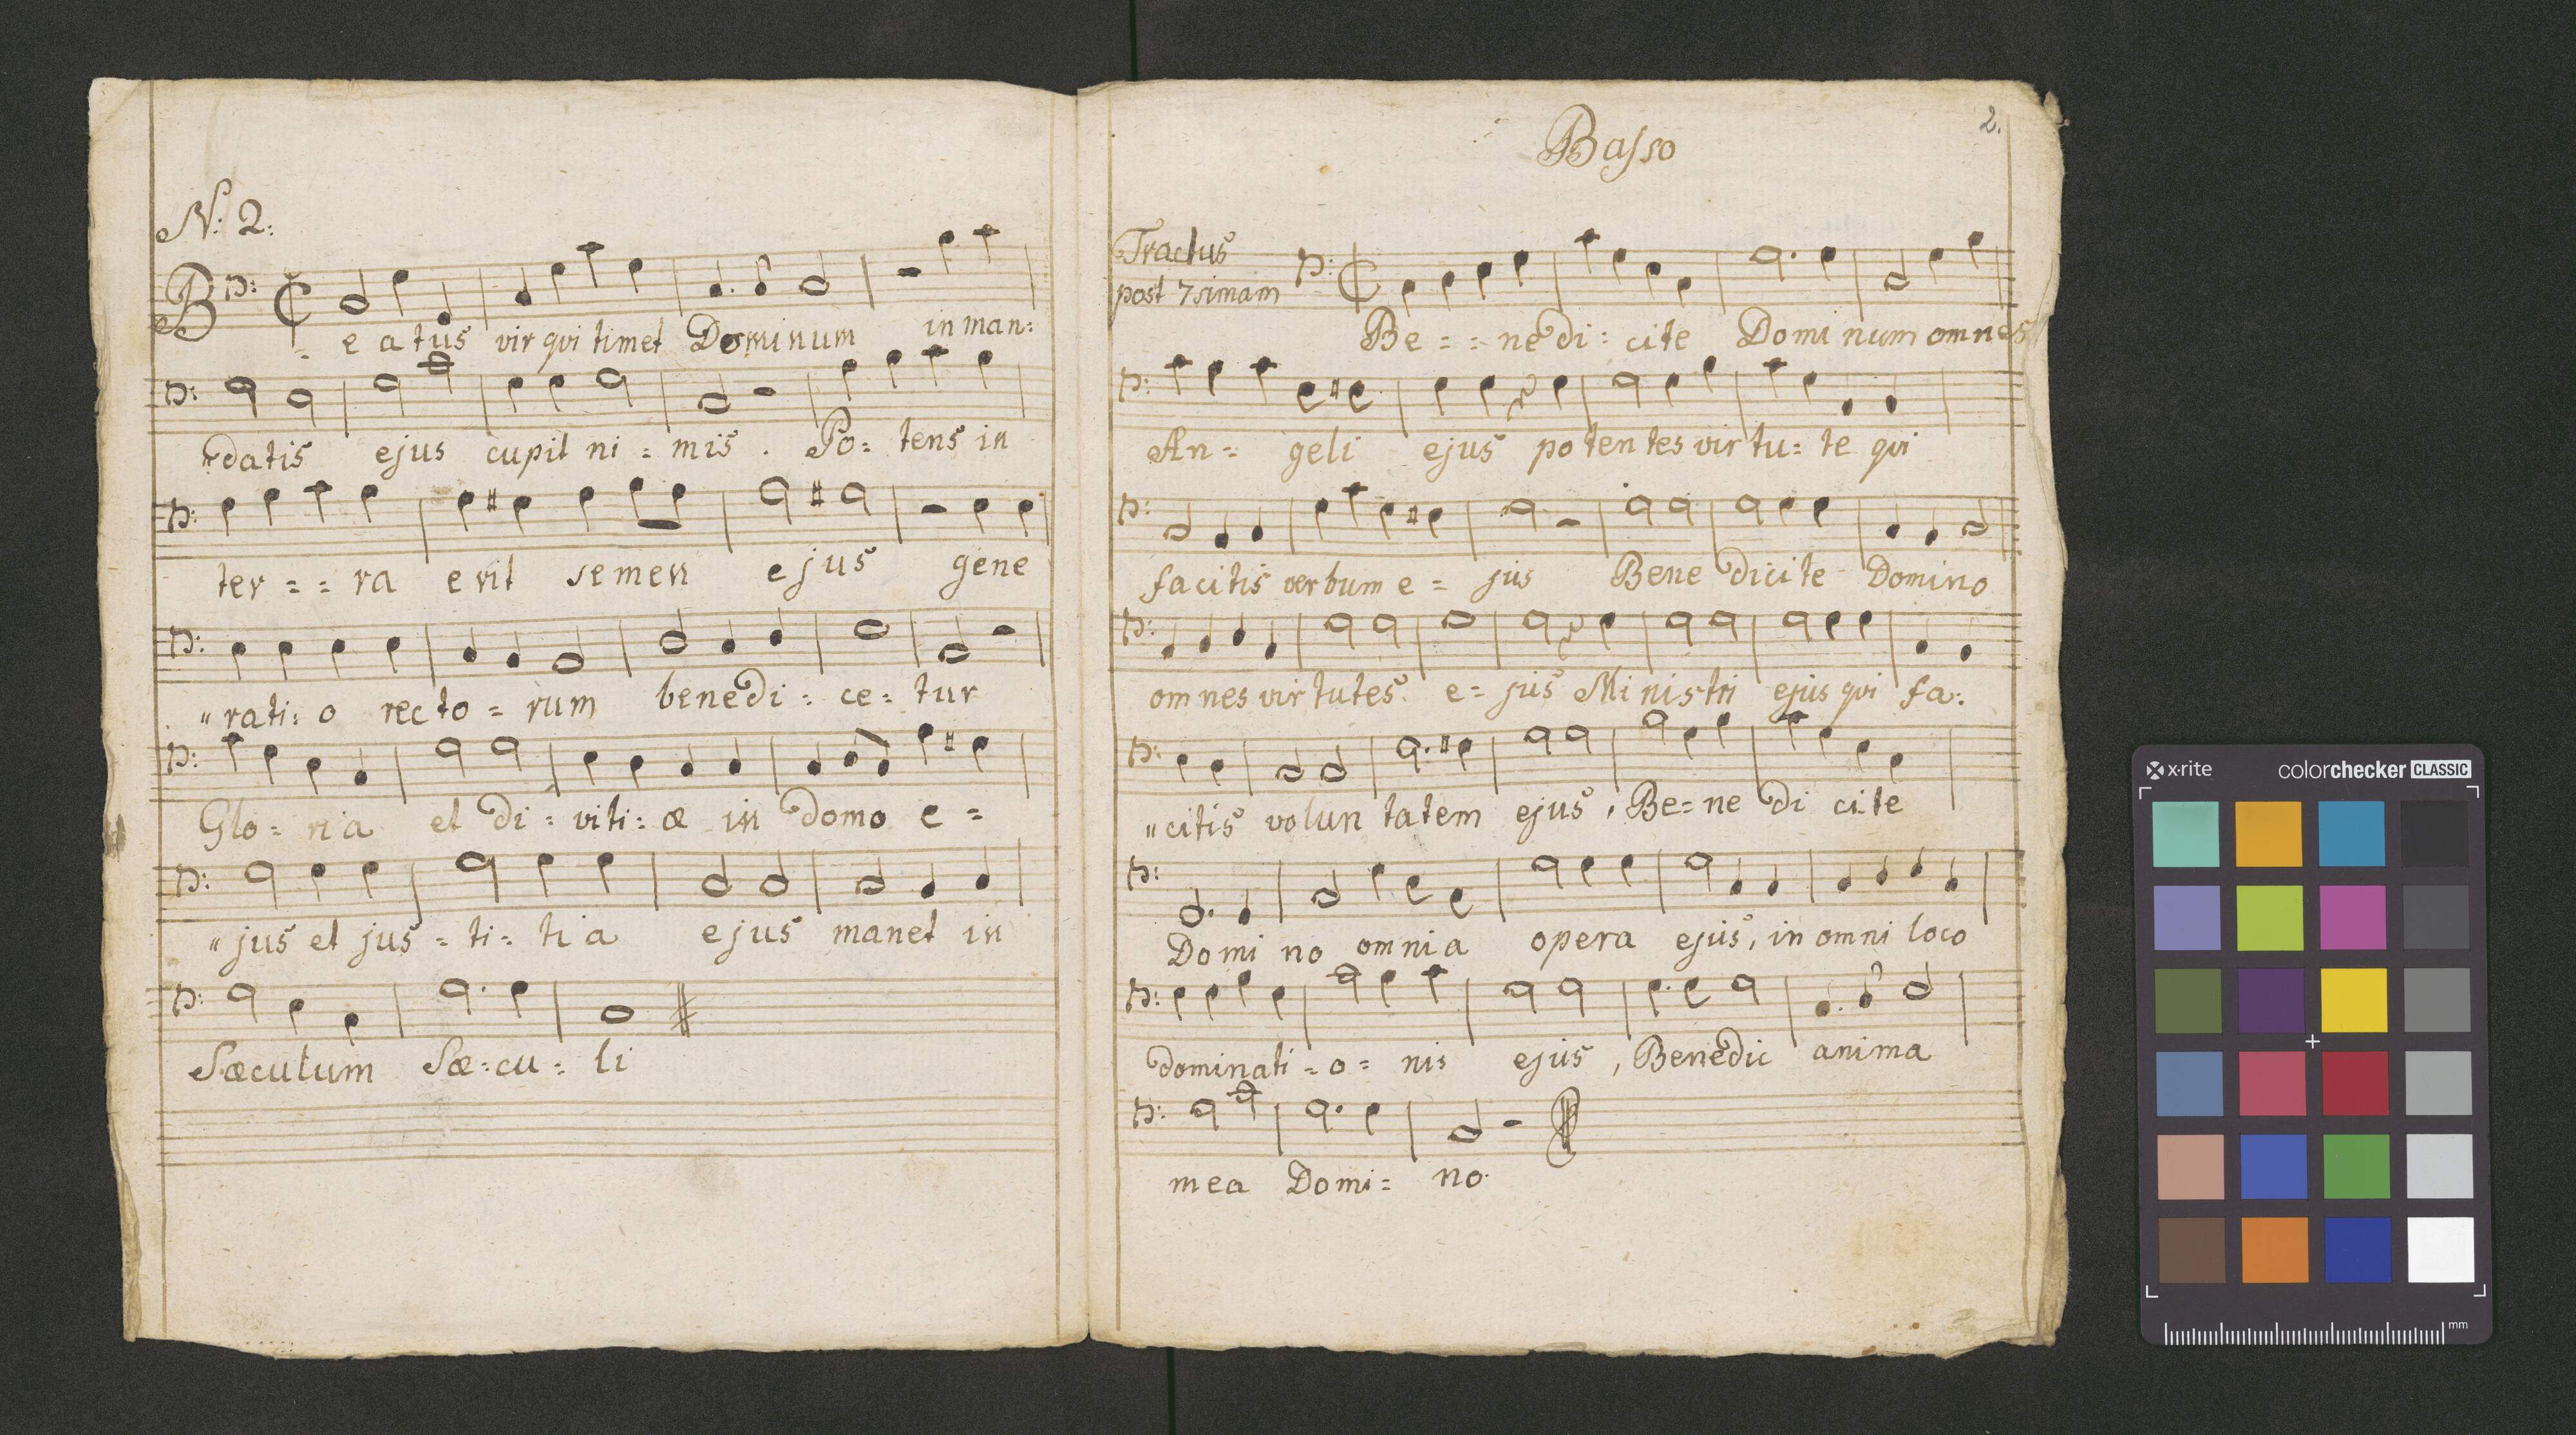 N: 2:
Beatus vir qui timet Dominum in man:
:datis ejus cupit ni = mis . Po = tens in
ter = = ra erit semen ejus gene
" rati: o recto = rum benedi : ce = tur
Glo = ria et di : viti : æ in domo e =
" jus et jus = ti = tia ejus manet in
Sæculum Sæ = cu : li
2.
Basso
Tractus
post 7simam
Be = = nedi : cite Dominum omnes
An = geli ejus potentes virtu : te qui
facitis verbum e = jus Benedicite Domino
omnes virtutes e = jus Ministri ejus qui fa :
" citis voluntatem ejus , Be = nedicite
Domino omnia opera ejus, in omni loco
dominati = o = nis ejus , Benedic anima
mea Domi = no.
x·rite
colorchecker CLASSIC
mm